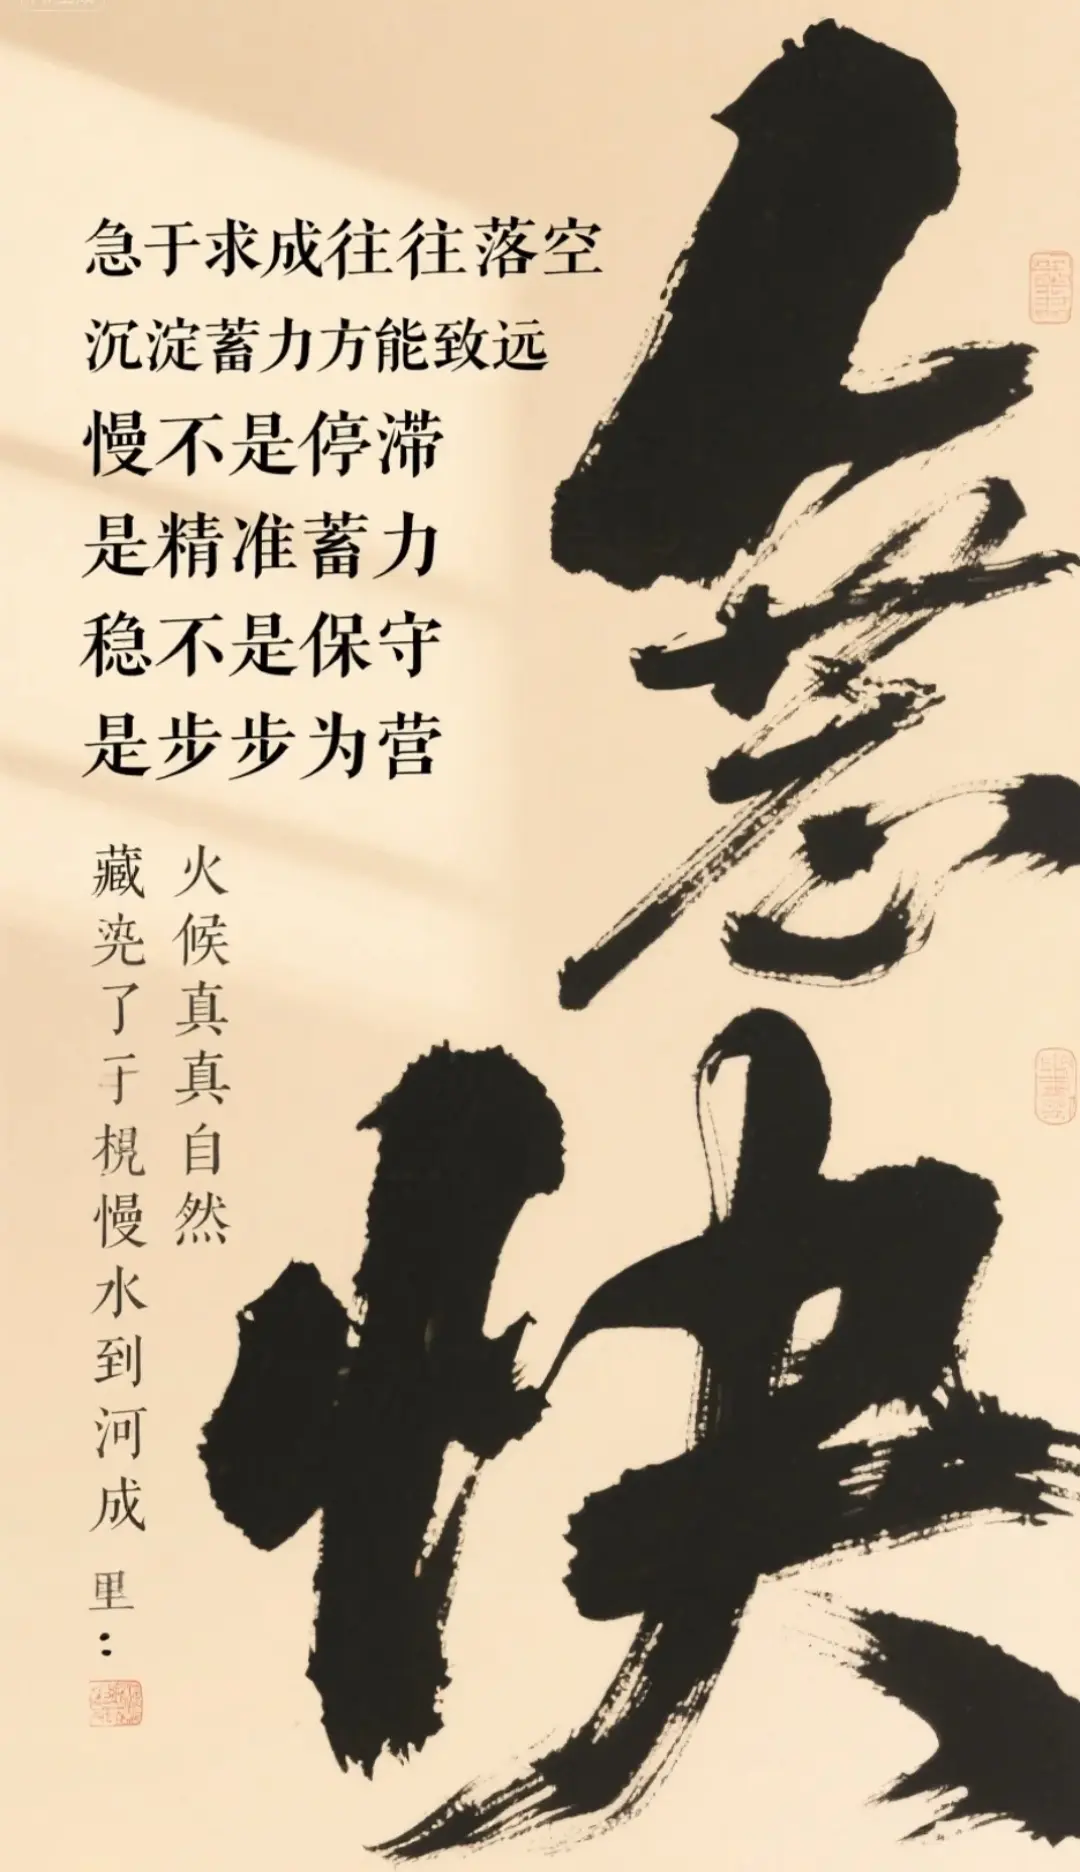 急于求成往往落空
沉淀蓄力方能致远
慢不是停滞
是精准蓄力
稳不是保守
是步步为营
火候真真自然
藏 了于 慢水到河成
里：
快